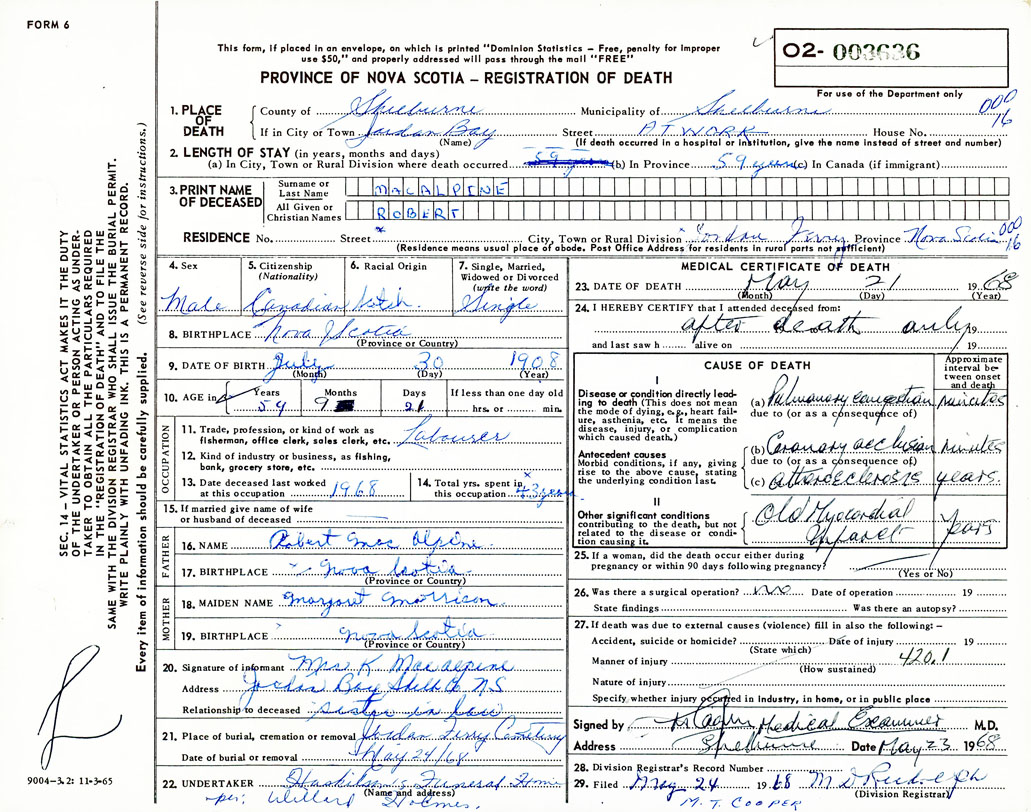 FORM 6
This form, if placed in an envelope, on which is printed "Dominion Statistics – Free, penalty for Improper
use $50," and properly addressed will pass through the mail "FREE"
PROVINCE OF NOVA SCOTIA – REGISTRATION OF DEATH
02- 003636
For use of the Department only
000
16
1. PLACE OF DEATH
County of Shelburne Municipality of Shelburne
If in City or Town Jordan Bay Street AT WORK House No.
(Name) (If death occurred in a hospital or institution, give the name instead of street and number)
2. LENGTH OF STAY (in years, months and days)
(a) In City, Town or Rural Division where death occurred (b) In Province 59 years (c) In Canada (if immigrant)
3. PRINT NAME OF DECEASED
Surname or Last Name MACALPINE
All Given or Christian Names ROBERT
RESIDENCE No. Street City, Town or Rural Division Jordan Ferry Province Nova Scotia
000
16
(Residence means usual place of abode. Post Office Address for residents in rural parts not sufficient)
4. Sex
Male
5. Citizenship
(Nationality)
Canadian
6. Racial Origin
7. Single, Married,
Widowed or Divorced
(write the word)
Single
8. BIRTHPLACE Nova Scotia
(Province or Country)
9. DATE OF BIRTH July 30 1908
(Month) (Day) (Year)
10. AGE in Years Months Days If less than one day old
59 9 21 hrs. or min.
OCCUPATION
11. Trade, profession, or kind of work as
fisherman, office clerk, sales clerk, etc. Labourer
12. Kind of industry or business, as fishing,
bank, grocery store, etc.
13. Date deceased last worked
at this occupation 1968
14. Total yrs. spent in
this occupation 43 years
15. If married give name of wife
or husband of deceased
FATHER
16. NAME Robert Mac Alpine
17. BIRTHPLACE Nova Scotia
(Province or Country)
MOTHER
18. MAIDEN NAME Margaret Morrison
19. BIRTHPLACE Nova Scotia
(Province or Country)
20. Signature of informant Mrs K MacAlpine
Address Jordan Bay Shel Co NS
Relationship to deceased sister in law
21. Place of burial, cremation or removal Jordan Ferry Cemetery
Date of burial or removal May 24/68
22. UNDERTAKER Funeral Home
(Name and address)
per: Willard Holmes
MEDICAL CERTIFICATE OF DEATH
23. DATE OF DEATH May 21 1968
(Month) (Day) (Year)
24. I HEREBY CERTIFY that I attended deceased from:
after death only 19
and last saw h alive on 19
CAUSE OF DEATH
Approximate interval between onset and death
I
Disease or condition directly leading to death (This does not mean the mode of dying, e.g., heart failure, asthenia, etc. It means the disease, injury, or complication which caused death.)
(a) Pulmonary congestion minutes
due to (or as a consequence of)
Antecedent causes
Morbid conditions, if any, giving rise to the above cause, stating the underlying condition last.
(b) Coronary occlusion minutes
due to (or as a consequence of)
(c) atherosclerosis years
II
Other significant conditions
contributing to the death, but not related to the disease or condition causing it.
Old Myocardial
years
25. If a woman, did the death occur either during
pregnancy or within 90 days following pregnancy?
(Yes or No)
26. Was there a surgical operation? no Date of operation 19
State findings Was there an autopsy?
27. If death was due to external causes (violence) fill in also the following: –
Accident, suicide or homicide? Date of injury 19
(State which)
Manner of injury 420.1
(How sustained)
Nature of injury
Specify whether injury occurred in Industry, in home, or in public place
Signed by Medical Examiner M.D.
Address Shelburne Date May 23 1968
28. Division Registrar's Record Number
29. Filed May 24 1968
(Division Registrar)
M. T. COOPER
SEC. 14 – VITAL STATISTICS ACT MAKES IT THE DUTY
OF THE UNDERTAKER OR PERSON ACTING AS UNDER-
TAKER TO OBTAIN ALL THE PARTICULARS REQUIRED
IN THE "REGISTRATION OF DEATH" AND TO FILE THE
SAME WITH THE DIVISION REGISTRAR WHO SHALL ISSUE THE BURIAL PERMIT.
WRITE PLAINLY WITH UNFADING INK. THIS IS A PERMANENT RECORD.
Every item of information should be carefully supplied. (See reverse side for instructions.)
9004-3.2: 11-3-65